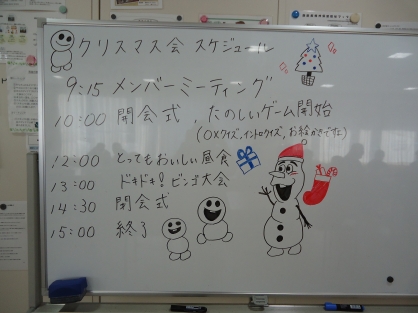 クリスマス会 スケジュール
9:15 メンバーミーティング
10:00 開会式、たのしいゲーム開始
(○×クイズ、イントロクイズ、お絵かきです♪)
12:00 とってもおいしい昼食
13:00 ドキドキ!ビンゴ大会
14:30 閉会式
15:00 終了